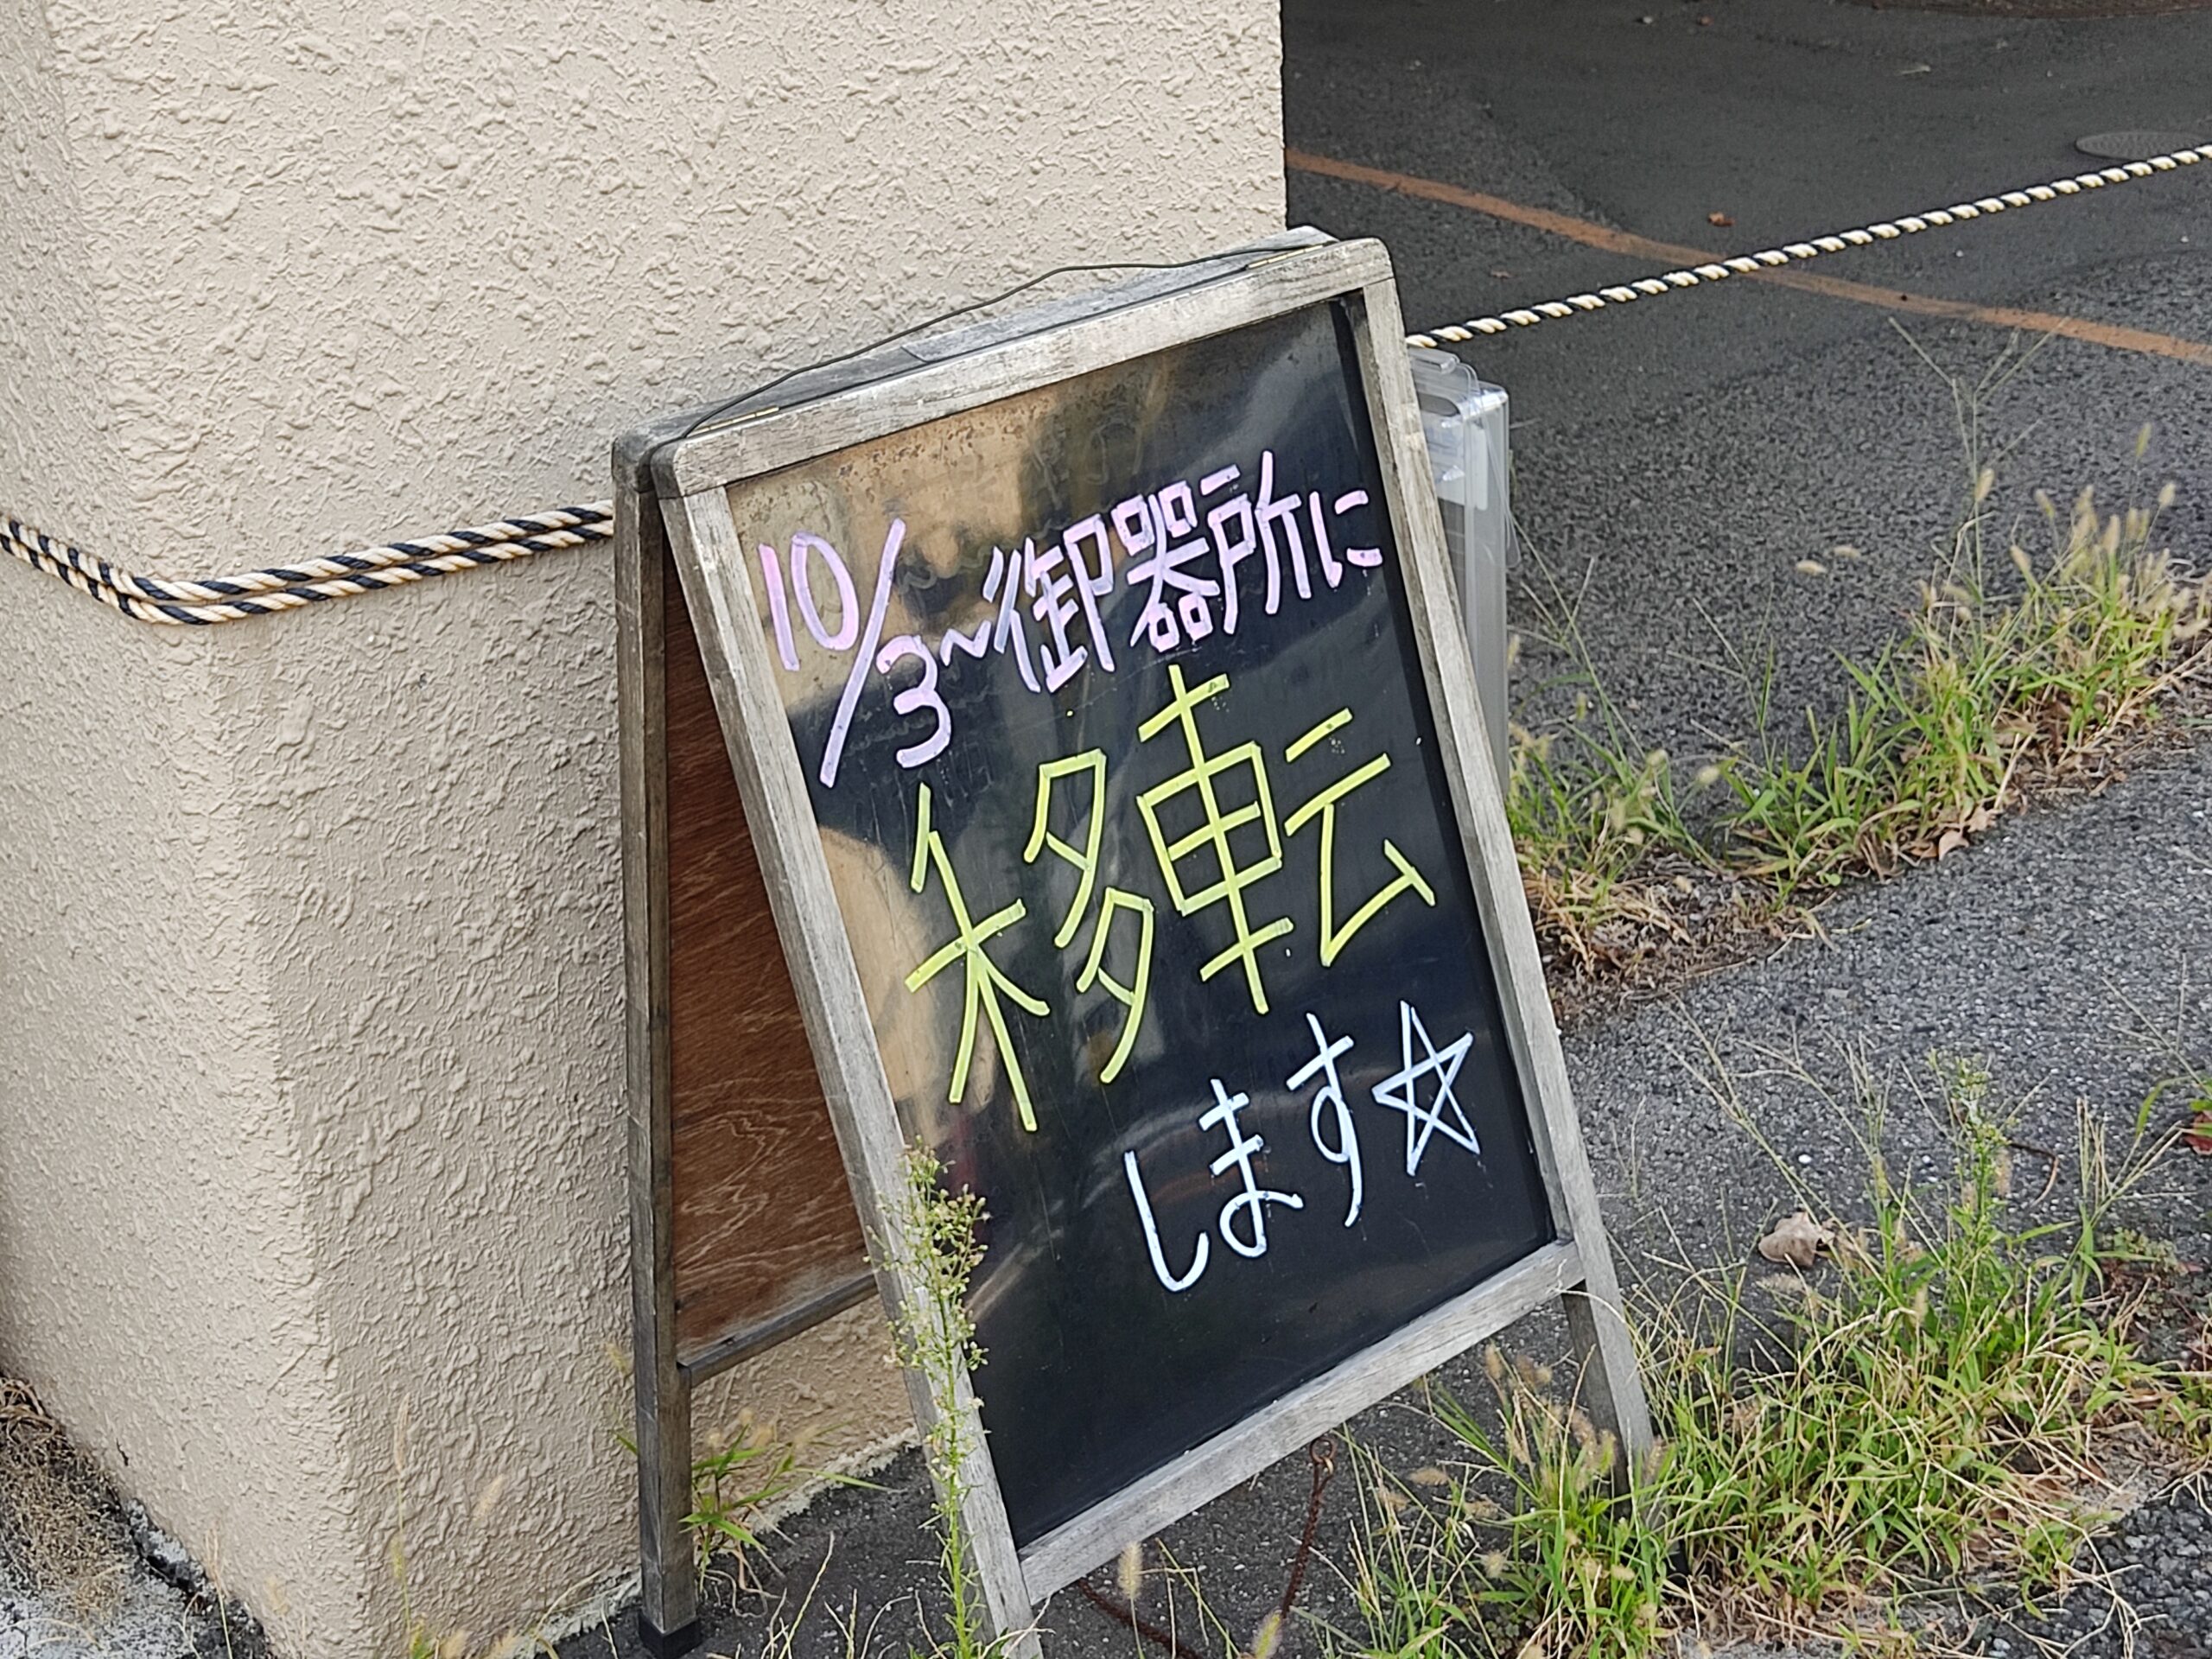 10/3~御器所に
移転
します☆